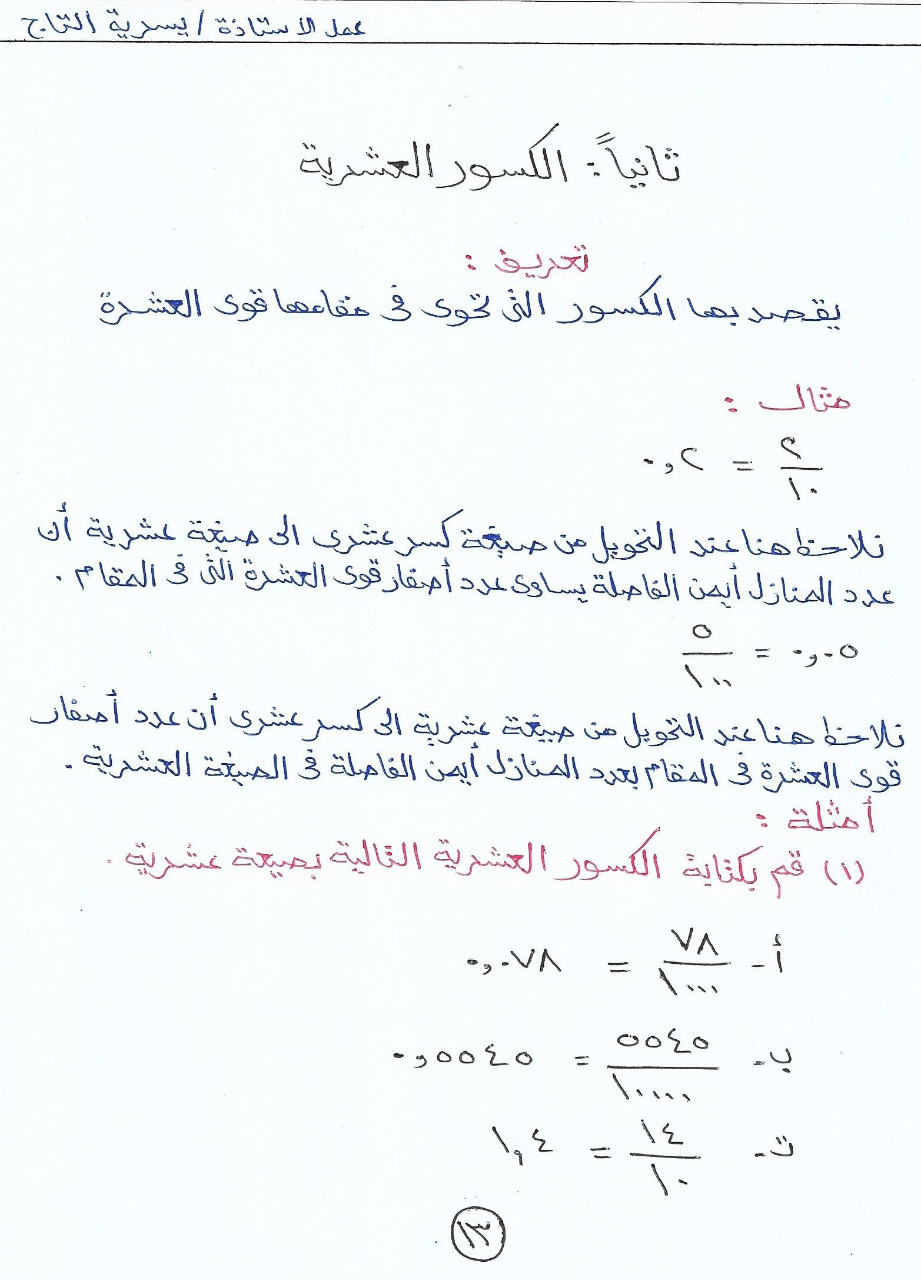 عمل الاستاذة / يسرية التاج
ثانياً : الكسور العشرية
تعريف :
يقصد بها الكسور التي تحوى فى مقامها قوى العشرة
مثال :
٢/١٠ = ٠,٢
نلاحظ هنا عند التحويل من صيغة كسر عشرى الى صيغة عشرية أن
عدد المنازل أيمن الفاصلة يساوى عدد أصفار قوى العشرة التى فى المقام .
٠,٠٥ = ٥/١٠٠
نلاحظ هنا عند التحويل من صيغة عشرية الى كسر عشرى أن عدد أصفار
قوى العشرة فى المقام بعدد المنازل أيمن الفاصلة فى الصيغة العشرية .
أمثلة :
(١) قم بكتابة الكسور العشرية التالية بصيعة عشرية .
أ- ٧٨/١٠٠٠ = ٠,٠٧٨
ب- ٥٥٤٥/١٠٠٠٠ = ٠,٥٥٤٥
ت- ١٤/١٠ = ١,٤
١٣